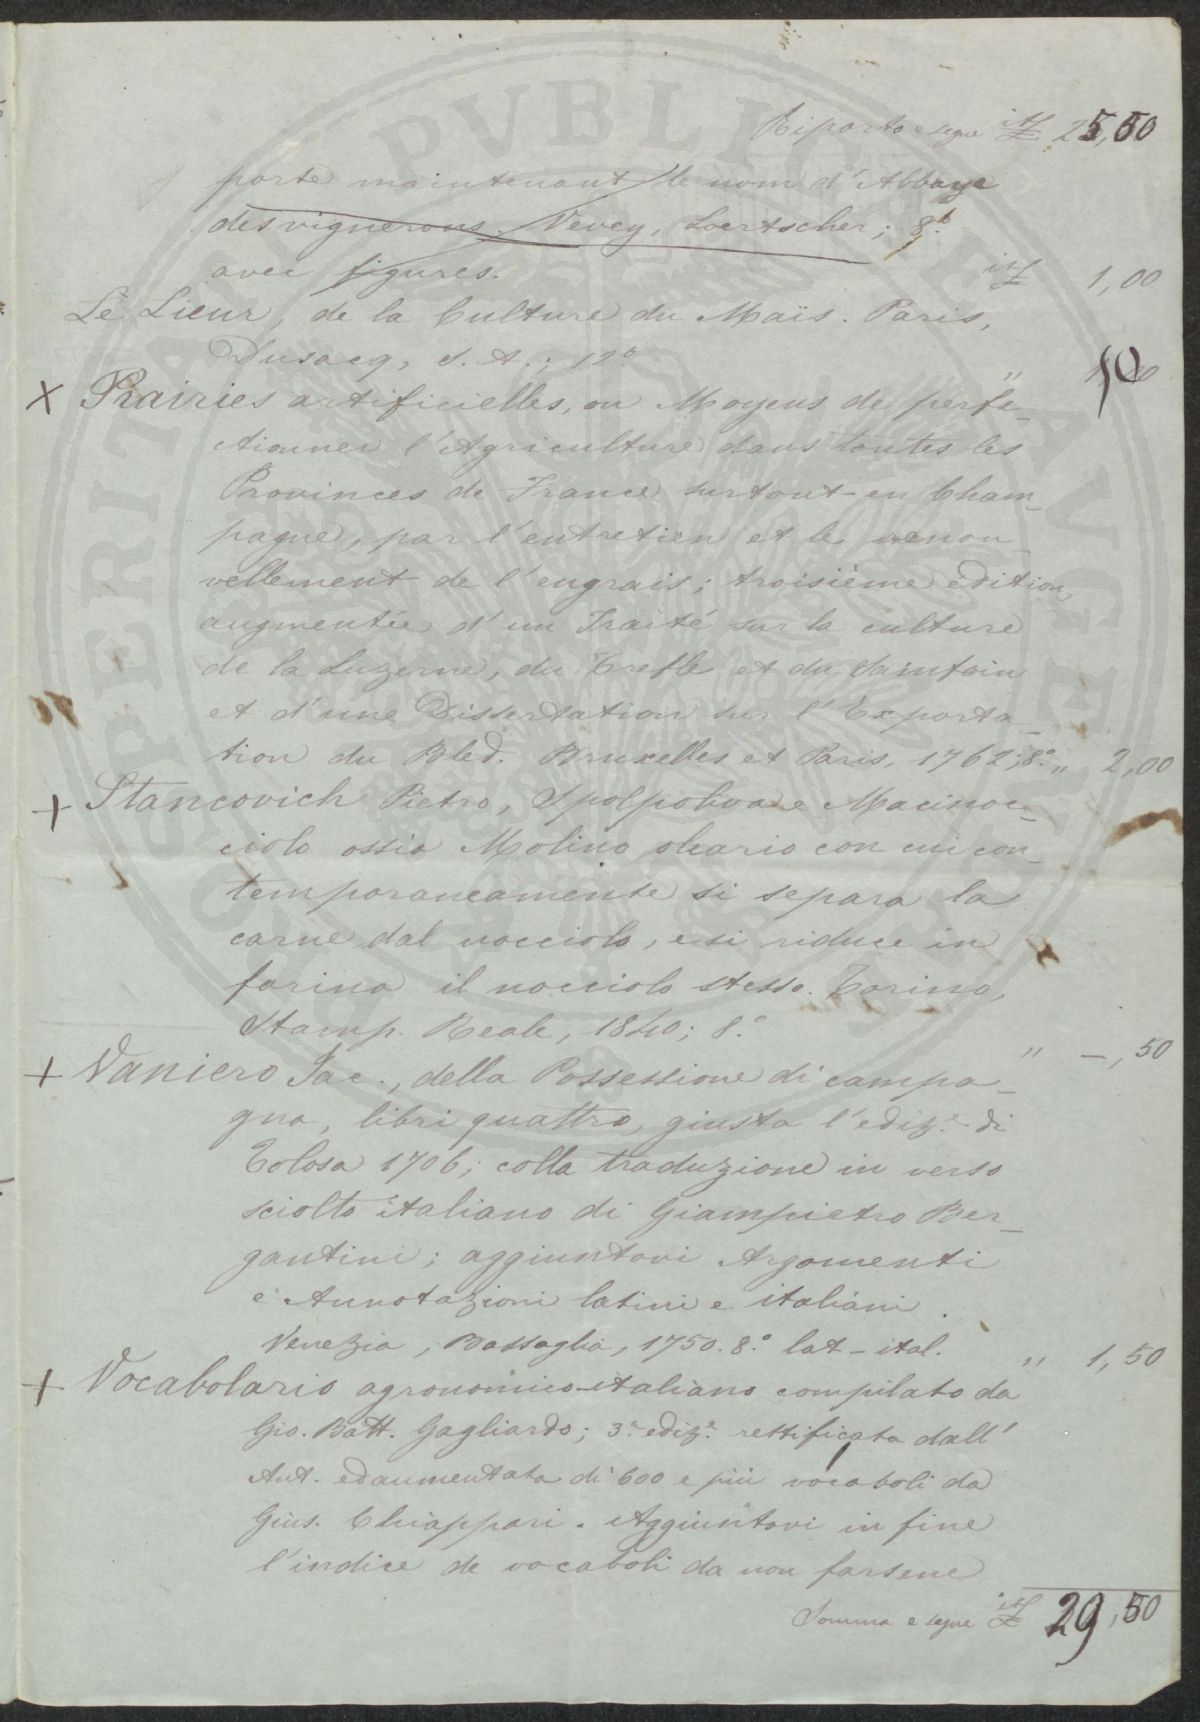 Riporto e segue it£ 25,50
porte maintenant le nom d'Abbaye
des vignerons. Vevey, Loertscher; 8.°
avec figures. it£ 1,00
Le Lieur, de la Culture du Maïs. Paris,
Dusacq, s. A.; 12° " 50
x Prairies artificielles, ou Moyens de perfe-
ctionner l'Agriculture dans toutes les
Provinces de France surtout en Cham-
pagne, par l'entretien et le renou-
vellement de l'engrais; troisième édition,
augmentée d'un Traité sur la culture
de la Luzerne, du Trefle et du Sainfoin
et d'une Dissertation sur l'Exporta-
tion du Bled. Bruxelles et Paris, 1762; 8.° " 2,00
+ Stancovich Pietro, Spolpoliva e Macinoc-
ciolo ossia Molino oleario con cui con-
temporaneamente si separa la
carne dal nocciolo, e si riduce in
farina il nocciolo stesso. Torino,
Stamp. Reale, 1840; 8.° " —,50
+ Vaniero Jac., della Possessione di campa-
gna, libri quattro, giusta l'ediz.e di
Tolosa 1706; colla traduzione in verso
sciolto italiano di Giampietro Ber-
gantini; aggiuntovi Argomenti
e Annotazioni latini e italiani.
Venezia, Bassaglia, 1750. 8.° lat-ital. " 1,50
+ Vocabolario agronomico-italiano compilato da
Gio. Batt. Gagliardo; 3.a ediz.e rettificata dall'
Aut. ed aumentata di 600 e più vocaboli da
Gius. Chiappari. Aggiuntovi in fine
l'indice de vocaboli da non farsene
Somma e segue it£ 29,50
PROSPERITATI PVBLICAE AVGENDAE